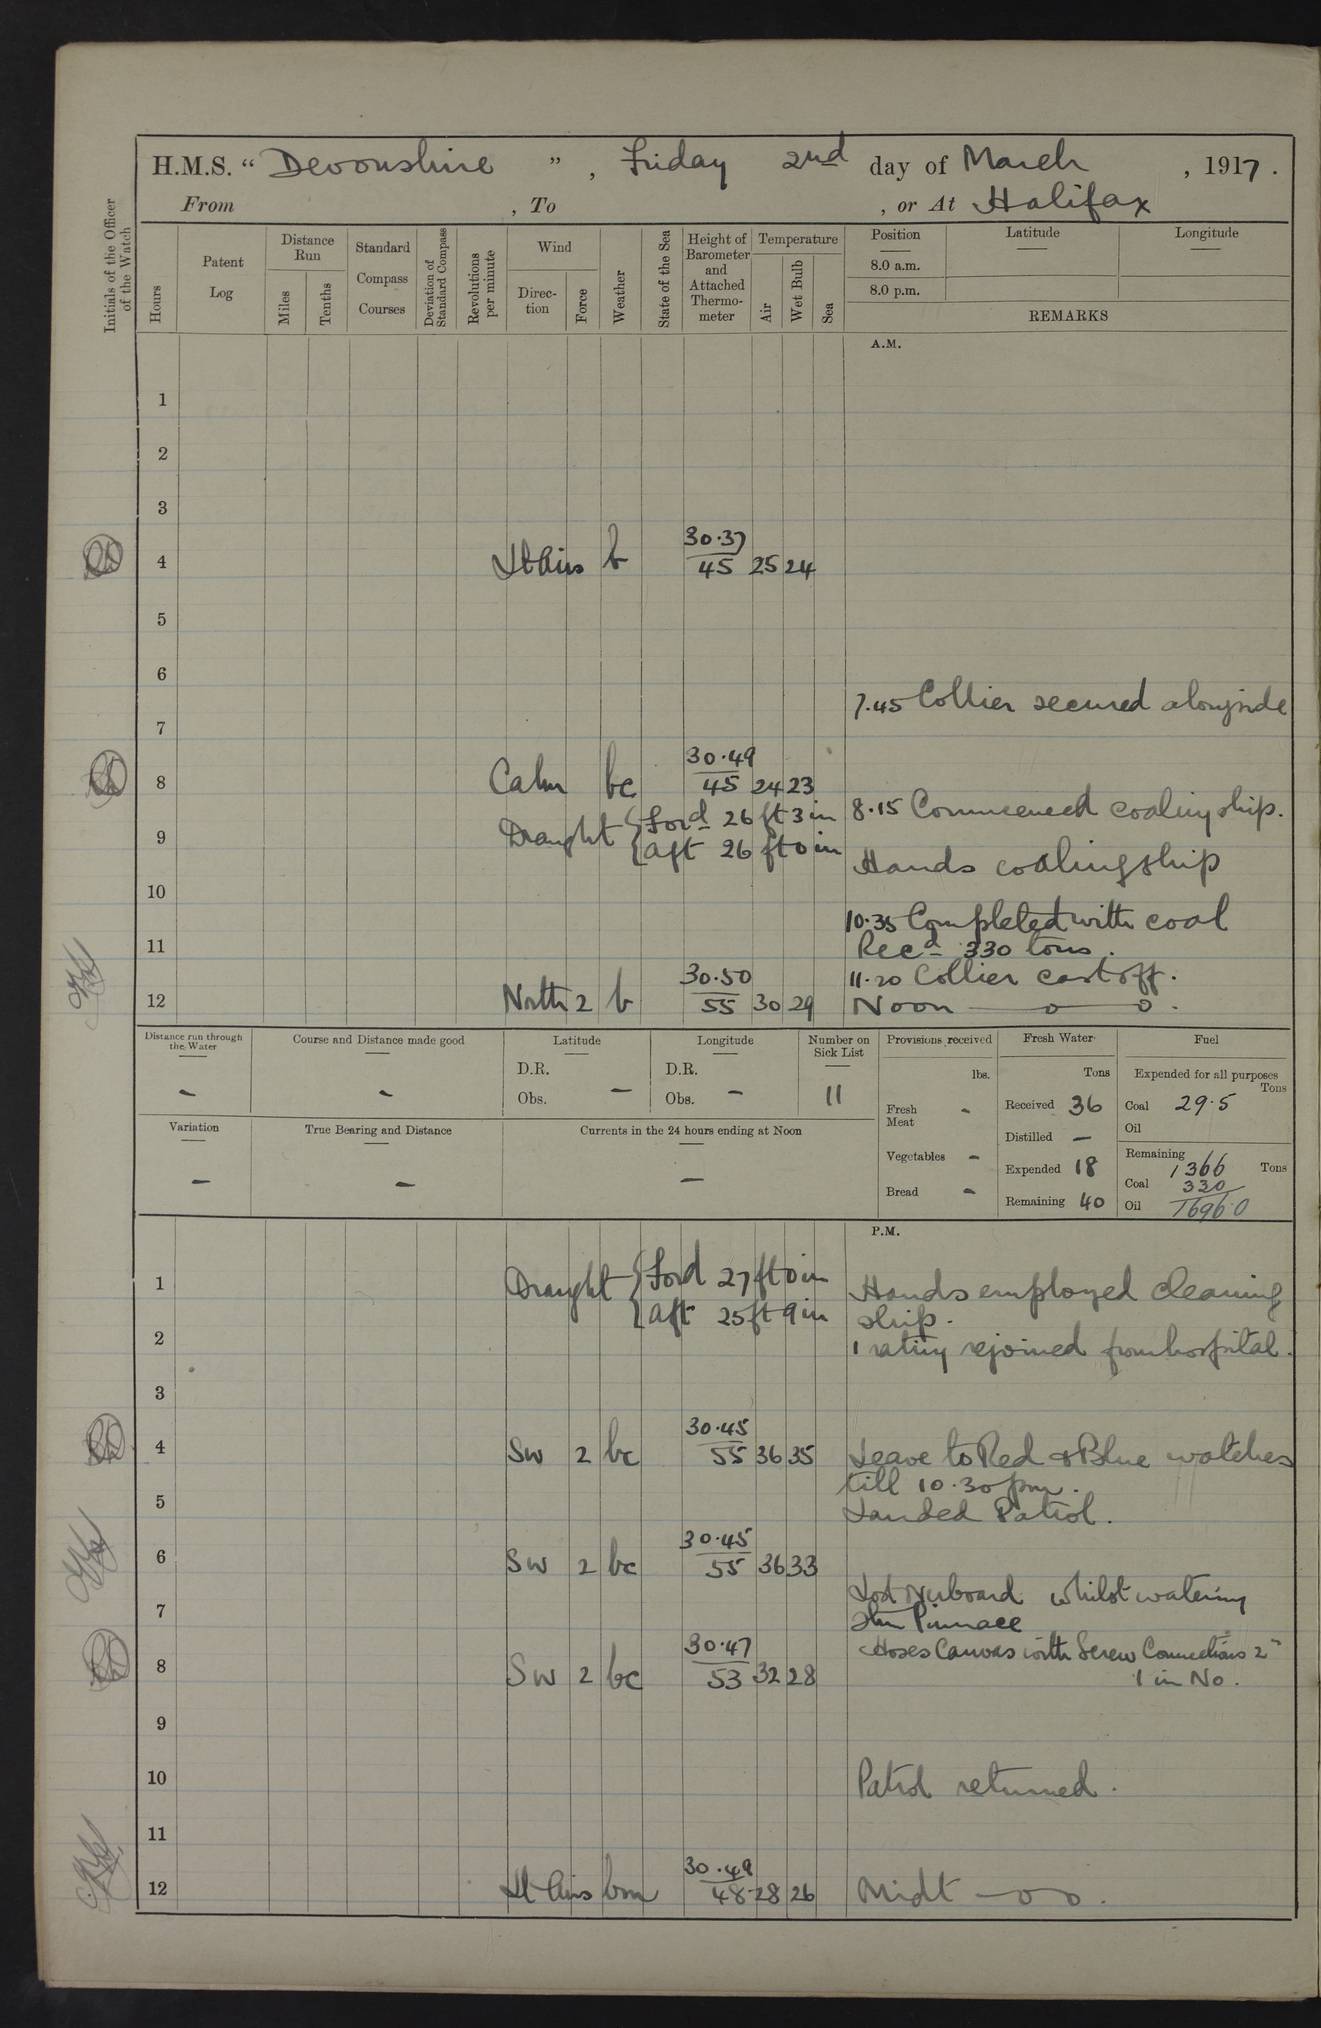 H.M.S. “ Devonshire ” , Friday 2nd day of March , 1917 .
From , To , or At Halifax
Initials of the Officer of the Watch
Hours
Patent Log
Distance Run
Miles
Tenths
Standard Compass Courses
Deviation of Standard Compass
Revolutions per minute
Wind
Direction
Force
Weather
State of the Sea
Height of Barometer and Attached Thermometer
Temperature
Air
Wet Bulb
Sea
Position Latitude Longitude
8.0 a.m.
8.0 p.m.
REMARKS
A.M.
1
2
3
4 Lt Airs b 30.37 / 45 25 24
5
6
7.45 Collier secured alongside
7
8 Calm bc 30.49 / 45 24 23
8.15 Commenced coaling ship.
9 Draught { Ford 26 ft 3 in
{ aft 26 ft 0 in
Hands coaling ship
10
10.35 Completed with coal
11 Recd 330 tons.
11.20 Collier cast off.
12 North 2 b 30.50 / 55 30 29 Noon
Distance run through the Water –
Course and Distance made good –
Latitude D.R. Obs. –
Longitude D.R. Obs. –
Number on Sick List 11
Variation –
True Bearing and Distance –
Currents in the 24 hours ending at Noon –
Provisions received lbs.
Fresh Meat -
Vegetables -
Bread -
Fresh Water Tons
Received 36
Distilled –
Expended 18
Remaining 40
Fuel
Expended for all purposes Tons
Coal 29.5
Oil
Remaining Tons
Coal 1366
330
Oil 1696.0
P.M.
1 Draught { Ford 27 ft 0 in Hands employed cleaning
{ aft 25 ft 9 in ship.
2 1 rating rejoined from hospital.
3
4 SW 2 bc 30.45 / 55 36 35 Leave to Red & Blue watches
till 10.30 pm.
5 Landed Patrol.
6 SW 2 bc 30.45 / 55 36 33
Lost overboard whilst watering
7 Stm Pinnace
Hoses Canvas with Screw Connections 2"
8 SW 2 bc 30.47 / 53 32 28 1 in No.
9
10 Patrol returned.
11
12 Lt Airs bm 30.49 / 48 28 26 Midt